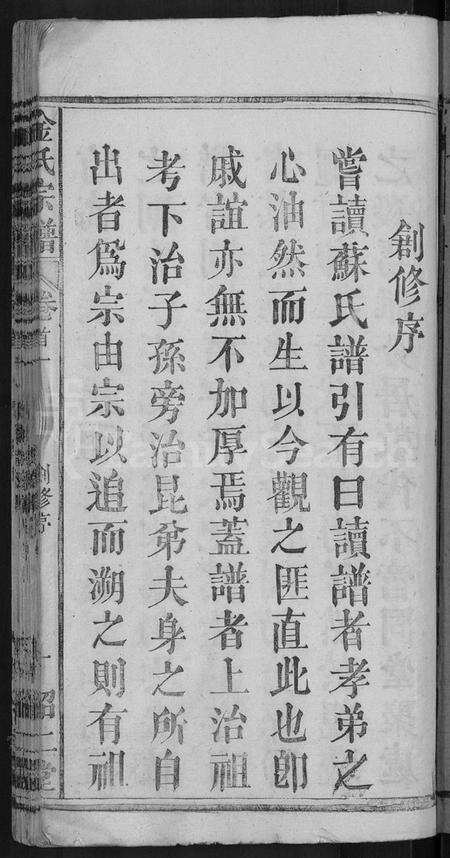 創修序
嘗讀蘇氏譜引有曰讀譜者孝弟之
心油然而生以今觀之匪直此也卽
戚誼亦無不加厚焉蓋譜者上治祖
考下治子孫旁治昆弟夫身之所自
出者爲宗由宗以追而溯之則有祖
金氏宗譜
卷首一
創修序
一